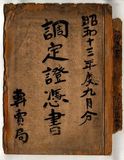 昭和十三年度九月分
調定證憑書
專賣局